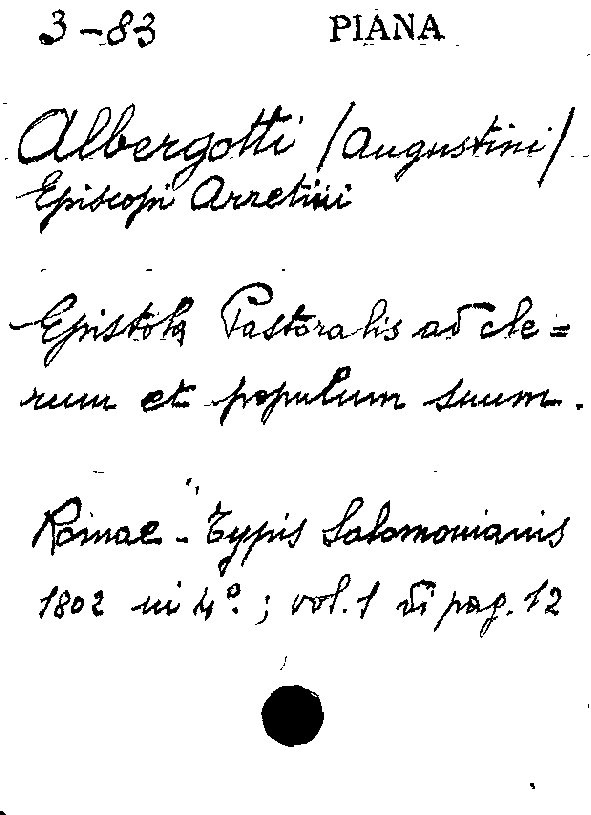 3-83 PIANA
Albergotti (Augustini)
Episcopi Arretini
Epistola Pastoralis ad cle=
rum et populum suum.
Romae - Typis Salomonianis
1802 in 4º.; vol. 1 di pag. 12